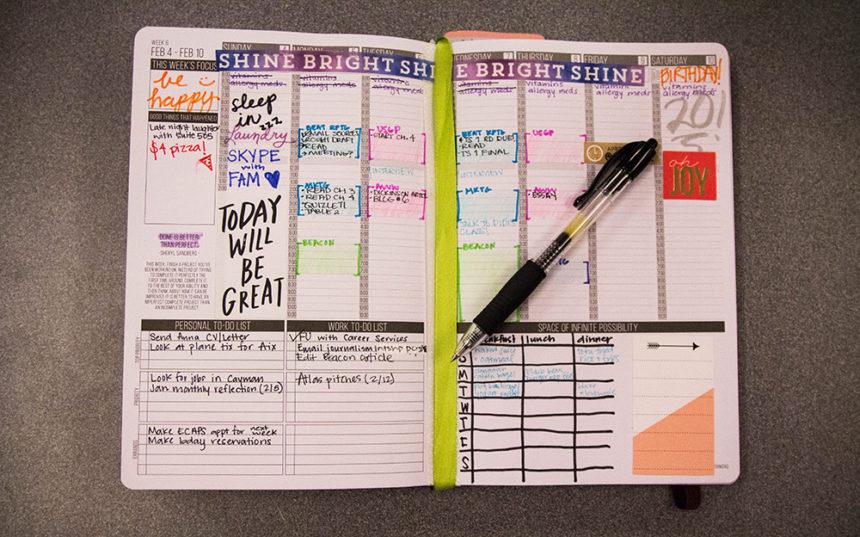 WEEK 6
FEB 4 - FEB 10
THIS WEEK'S FOCUS
be
happy
GOOD THINGS THAT HAPPENED
Late night laughter
with suite 505
$4 pizza!
DONE IS BETTER
THAN PERFECT.
- SHERYL SANDBERG -
THIS WEEK, FINISH A PROJECT YOU'VE
BEEN WORKING ON. INSTEAD OF TRYING
TO COMPLETE IT PERFECTLY THE
FIRST TIME AROUND, COMPLETE IT
TO THE BEST OF YOUR ABILITY AND
THEN THINK ABOUT HOW IT CAN BE
IMPROVED. IT IS BETTER TO HAVE AN
IMPERFECT COMPLETE PROJECT THAN
AN INCOMPLETE PROJECT.
SUNDAY 4 MONDAY 5 TUESDAY
SHINE BRIGHT SHI
vitamins
allergy meds
sleep
in zzz
laundry
SKYPE
with
FAM
TODAY
WILL
BE
GREAT
vitamins
allergy meds
BEAT RPTG
ROUGH DRAFT
READ
MEETING?
MKTG
READ CH 3
READ CH 4
QUIZLET
TABLE 2
BEACON
vitamins
allergy meds
USGP
START CH. 4
INTERVIEW
BLOG #6
PERSONAL TO-DO LIST
Send Anna CV/Letter
Look at plane tix for Aix
Look for jobs in Cayman
Jan monthly reflection (2/5)
Make ECAPS appt for next week
Make bday reservations
TOP PRIORITY
PRIORITY
ERRANDS
WORK TO-DO LIST
FU with Career Services
Email journalism
Edit Beacon article
Atlas pitches (2/12)
EDNESDAY 7 THURSDAY 8 FRIDAY 9 SATURDAY 10
E BRIGHT SHINE
allergy meds
BEAT RPTG
TS 1 RD DUE
READ
TS 1 FINAL
INTERVIEW
MKTG
BEACON
vitamins
allergy meds
USGP
ESSAY
vitamins
allergy meds
BIRTHDAY!
vitamins
allergy meds
20!
oh
JOY
SPACE OF INFINITE POSSIBILITY
breakfast lunch dinner
S
M
T
W
T
F
S